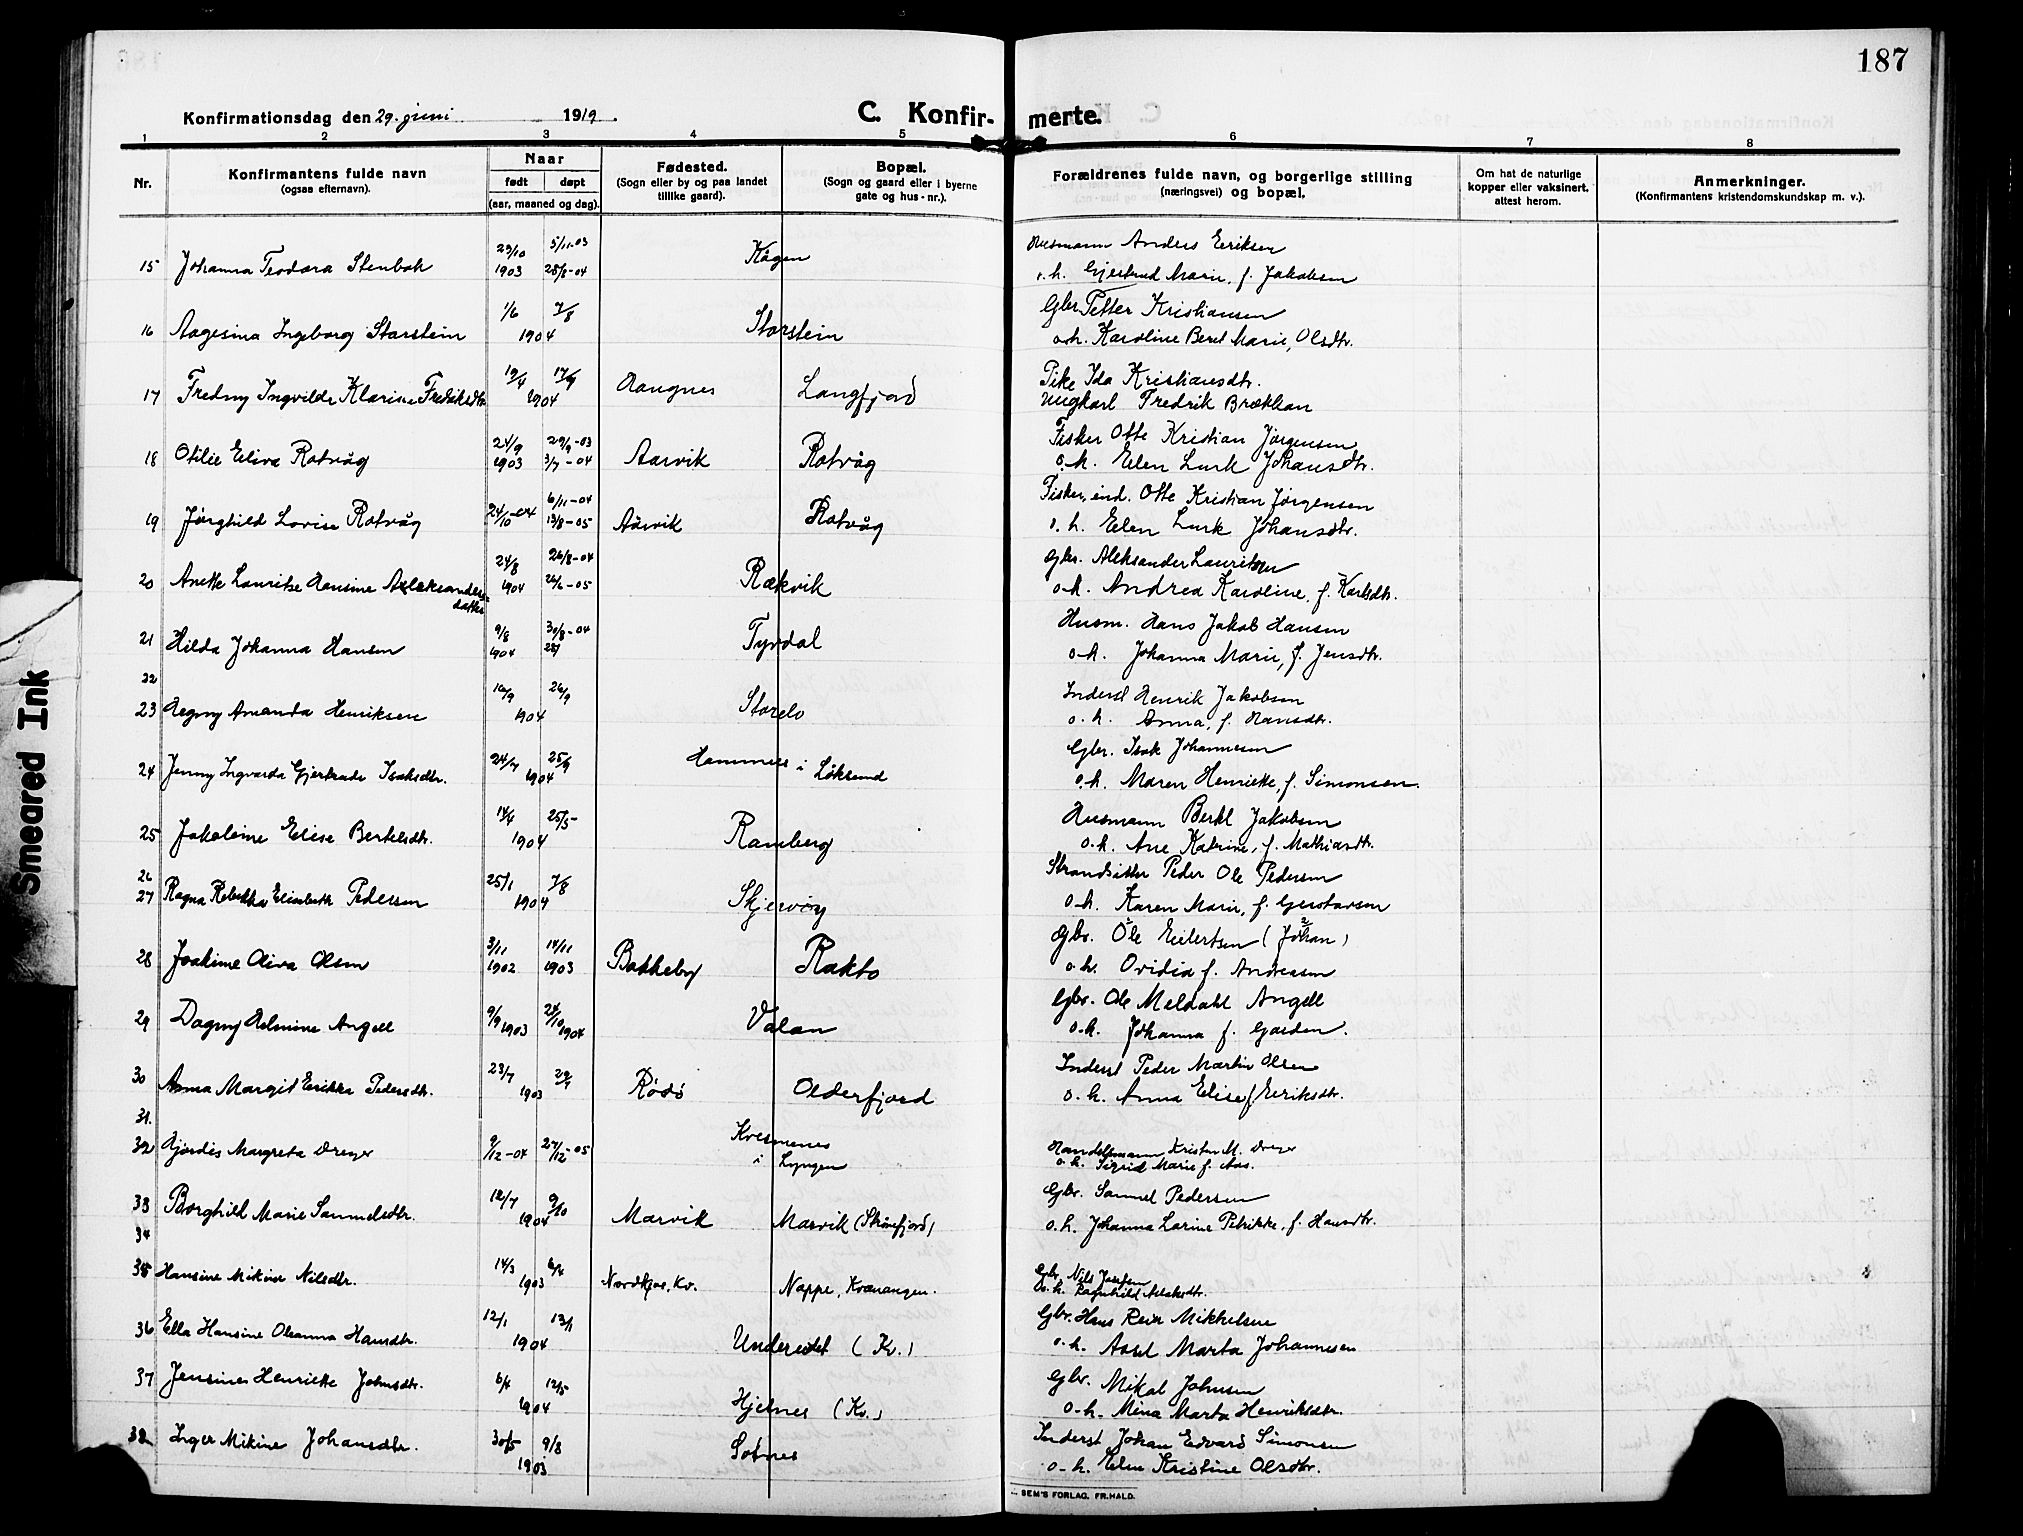 187
Konfirmationsdag den 29. juni 1919.
C. Konfir- merte.
1 2 3 4 5 6 7 8
Nr.
Konfirmantens fulde navn
(ogsaa efternavn).
Naar
født døpt
(aar, maaned og dag).
Fødested.
(Sogn eller by og paa landet
tillike gaard).
Bopæl.
(Sogn og gaard eller i byerne
gate og hus-nr.).
Forældrenes fulde navn, og borgerlige stilling
(næringsvei) og bopæl.
Om hat de naturlige
kopper eller vaksinert.
attest herom.
Anmerkninger.
(Konfirmantens kristendomskundskap m. v.).
29/10 5/11-03 Husmann Anders Eriksen
15 Johanna Teodora Stenbak 1903 28/8-04 Kågen o. h. Gjertrud Marie, f. Jakobsen
1/6 7/8 Gbr Petter Kristiansen
16 Aagesina Ingeborg Storstein 1904 Storstein o.h. Karoline Beret Marie, Olsdtr.
19/4 17/9 Pike Ida Kristiansdtr.
17 Fredny Ingvilde Klarine Fredriksdtr 1904 Haugnes Langfjord Ungkarl Fredrik Brækkan
24/9 29/9-03 Fisker Otte Kristian Jørgensen
18 Otilie Eliva Rotvåg 1903 3/7-04 Aarvik Rotvåg o. h. Elen Lurk Johansdtr.
6/11-04 Fisker, ind. Otte Kristian Jørgensen
19 Jørghild Lovise Rotvåg 24/10-04 13/8-05 Aårvik Rotvåg o. h. Elen Lurk Johansdtr.
24/8 26/8-04 Gbr. Aleksander Lauritsen
20 Anette Lauritse Hansine Aleksanders- 1904 26/6-05 Rækvik o.h. Andrea Karoline, f. Karlsdtr.
datter
9/8 30/8-04 Husm. Hans Jakob Hansen
21 Hilda Johanna Hansen 1904 Tyrdal o.h. Johanna Marie, f. Jensdtr.
22
16/9 26/9 Inderst Henrik Jakobsen
23 Hegny Amanda Henriksen 1904 Storelv o. h. Anna, f. Hansdtr.
Gbr. Isak Johannesen
24 Jenny Ingvarda Gjertrude Isaksdtr. 24/7 25/9 1904 Hammnes i Løksund o.h. Maren Henriette, f. Simonsen.
14/4 25/5 Husmann Bertel Jakobsen
25 Jakobine Elise Bertelsdtr. 1904 Ramberg o.h. Ane Katrine, f. Mathiasdtr.
26
25/1 7/8 Strandsitter Peder Ole Pedersen
27 Ragna Rebekka Elisabeth Pedersen 1904 Skjervøy o.h. Karen Marie, f. Gustavsen
3/11 14/11 Gbr. Ole Eilertsen (Johan)
28 Joakime Oliva Olsen 1902 1903 Bakkeby Rakto o. h. Ovidia f. Andreasen
Gbr. Ole Meldahl Angell
29 Dagny Helmine Angell 9/9 1903 24/10 1904 Valan o.h. Johanna f. Garden.
23/7 29/7 Inderst Peder Martin Olsen
30 Anna Margit Erikke Pedersdtr. 1903 Rödö Olderfjord o. h. Anna Elise f. Eeriksdtr.
31.
32 Hjørdis Margreta Dreyer 9/12-04 27/12-05 Kvesmenes i Lyngen Handelsmann Kristen M. Dreyer
o.h. Sigrid Marie f. Aas.
12/7 9/10 Gbr. Samuel Pedersen
33 Borghild Marie Samuelsdtr. 1904 Marvik Marvik (Skånefjord) o.h. Johanna Larine Petrikke, f. Hansdtr.
34
14/3 6/4 Gbr. Nils Josefsen
35 Hansine Mikine Nilsdtr. 1903 Nordkjos, Kv. Nappe, Kvænangen. o. h. Ragnhild
12/1 13/1 Gbr. Hans Reier Mikkelsen
36 Ella Hansine Oleanna Hansdtr. 1904 Undereidet (Kv.) o. h. Assel Marta Johannesen
6/4 12/5 Gbr. Mikal Johnsen
37 Jensine Henriette Johnsdtr. 1904 Hjelnes (Kv.) o-h. Mina Marta Henriksdtr.
30/5 9/8 Inderst Johan Edvard Simonsen
38 Inger Mikine Johansdtr. 1903 Sotnes o-h. Elen Kristine Olsdtr.
SEM'S FORLAG, FR.HALD.
Smeared Ink